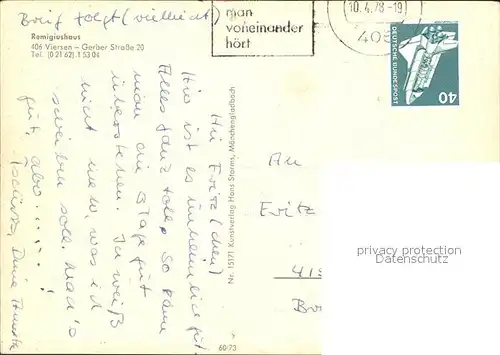 Brief folgt (vielleicht)
Remigiushaus
406 Viersen - Gerber Straße 20
Tel. (0 21 62) 1 53 04
man
voneinander
hört
10.4.78-19
405
DEUTSCHE BUNDESPOST
40
Hi Fritz(chen)
Hier ist es unheimlich gut
Alles ganz toll, so kann
man die Tage gut
überstehen. Ich weiß
nicht mehr, was ich
schreiben soll. Mach's
gut, also . . . . !
Tschüss, Deine
Nr. 15171 Kunstverlag Hans Storms, Mönchengladbach
60/73
An
Fritz
privacy protection
ansichtskarten-center.de